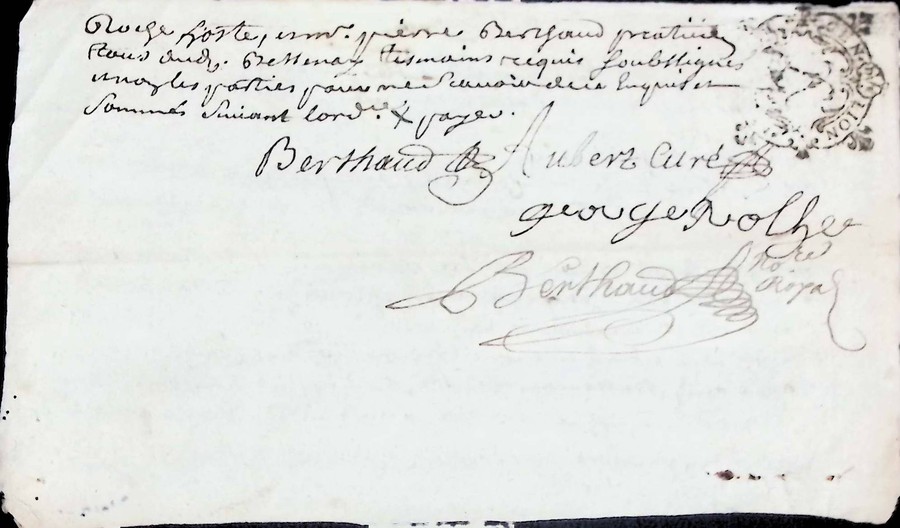 Roche hoste, et mr. pierre Berthaud praticien
tous dud. Bessenay tesmoins requis soubsignes
et non les parties pour ne scavoir de ce enquis et
sommés suivant lord.ce & payer.
Berthaud
Aubert Curé
george Rolhe
Berthaud no.re Royal
GEN LION